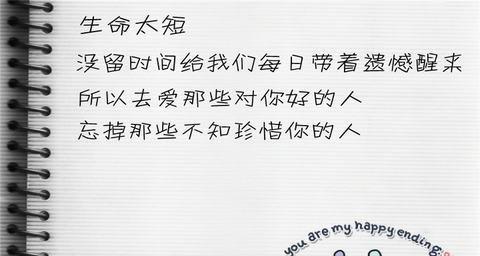 生命太短
没留时间给我们每日带着遗憾醒来
所以去爱那些对你好的人
忘掉那些不知珍惜你的人
you are my happy ending